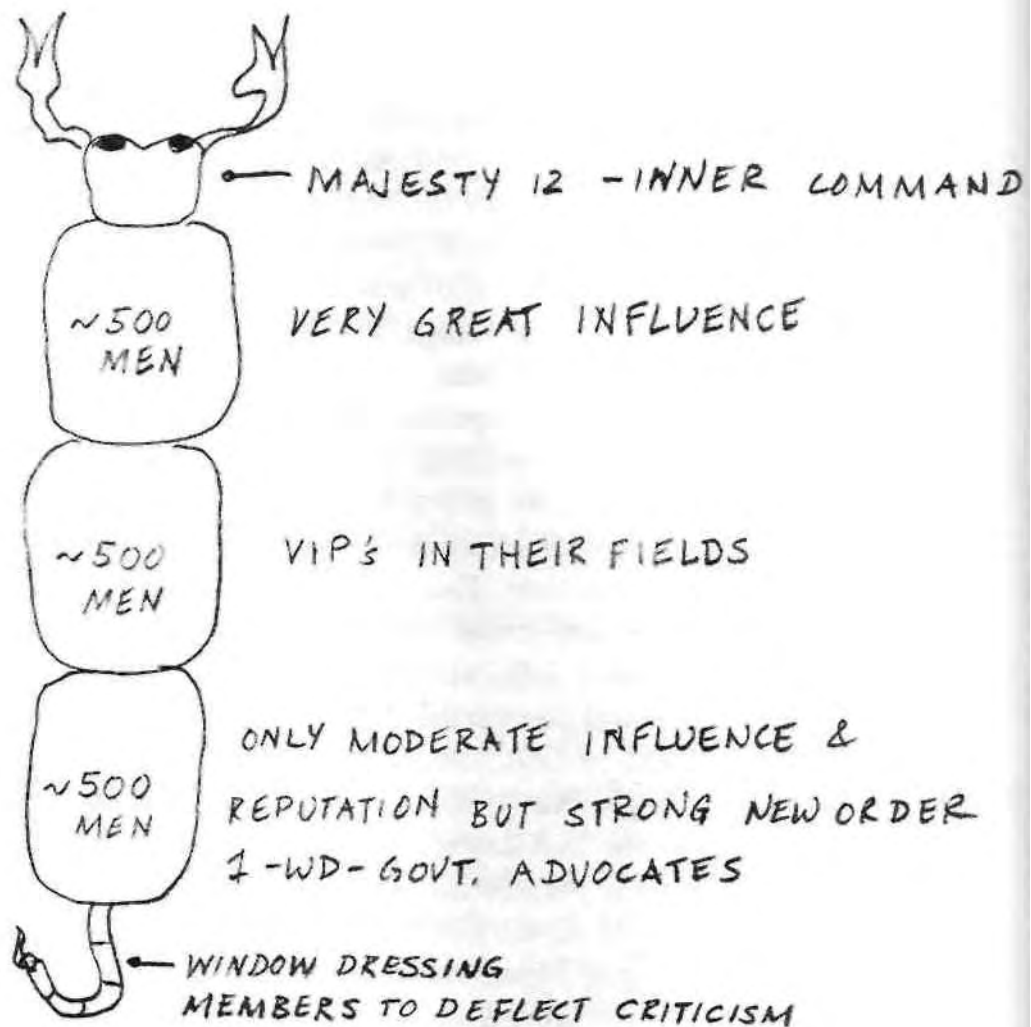 MAJESTY 12 - INNER COMMAND
~500
MEN
VERY GREAT INFLUENCE
~500
MEN
VIP's IN THEIR FIELDS
~500
MEN
ONLY MODERATE INFLUENCE &
REPUTATION BUT STRONG NEW ORDER
1-WD-GOVT. ADVOCATES
WINDOW DRESSING
MEMBERS TO DEFLECT CRITICISM